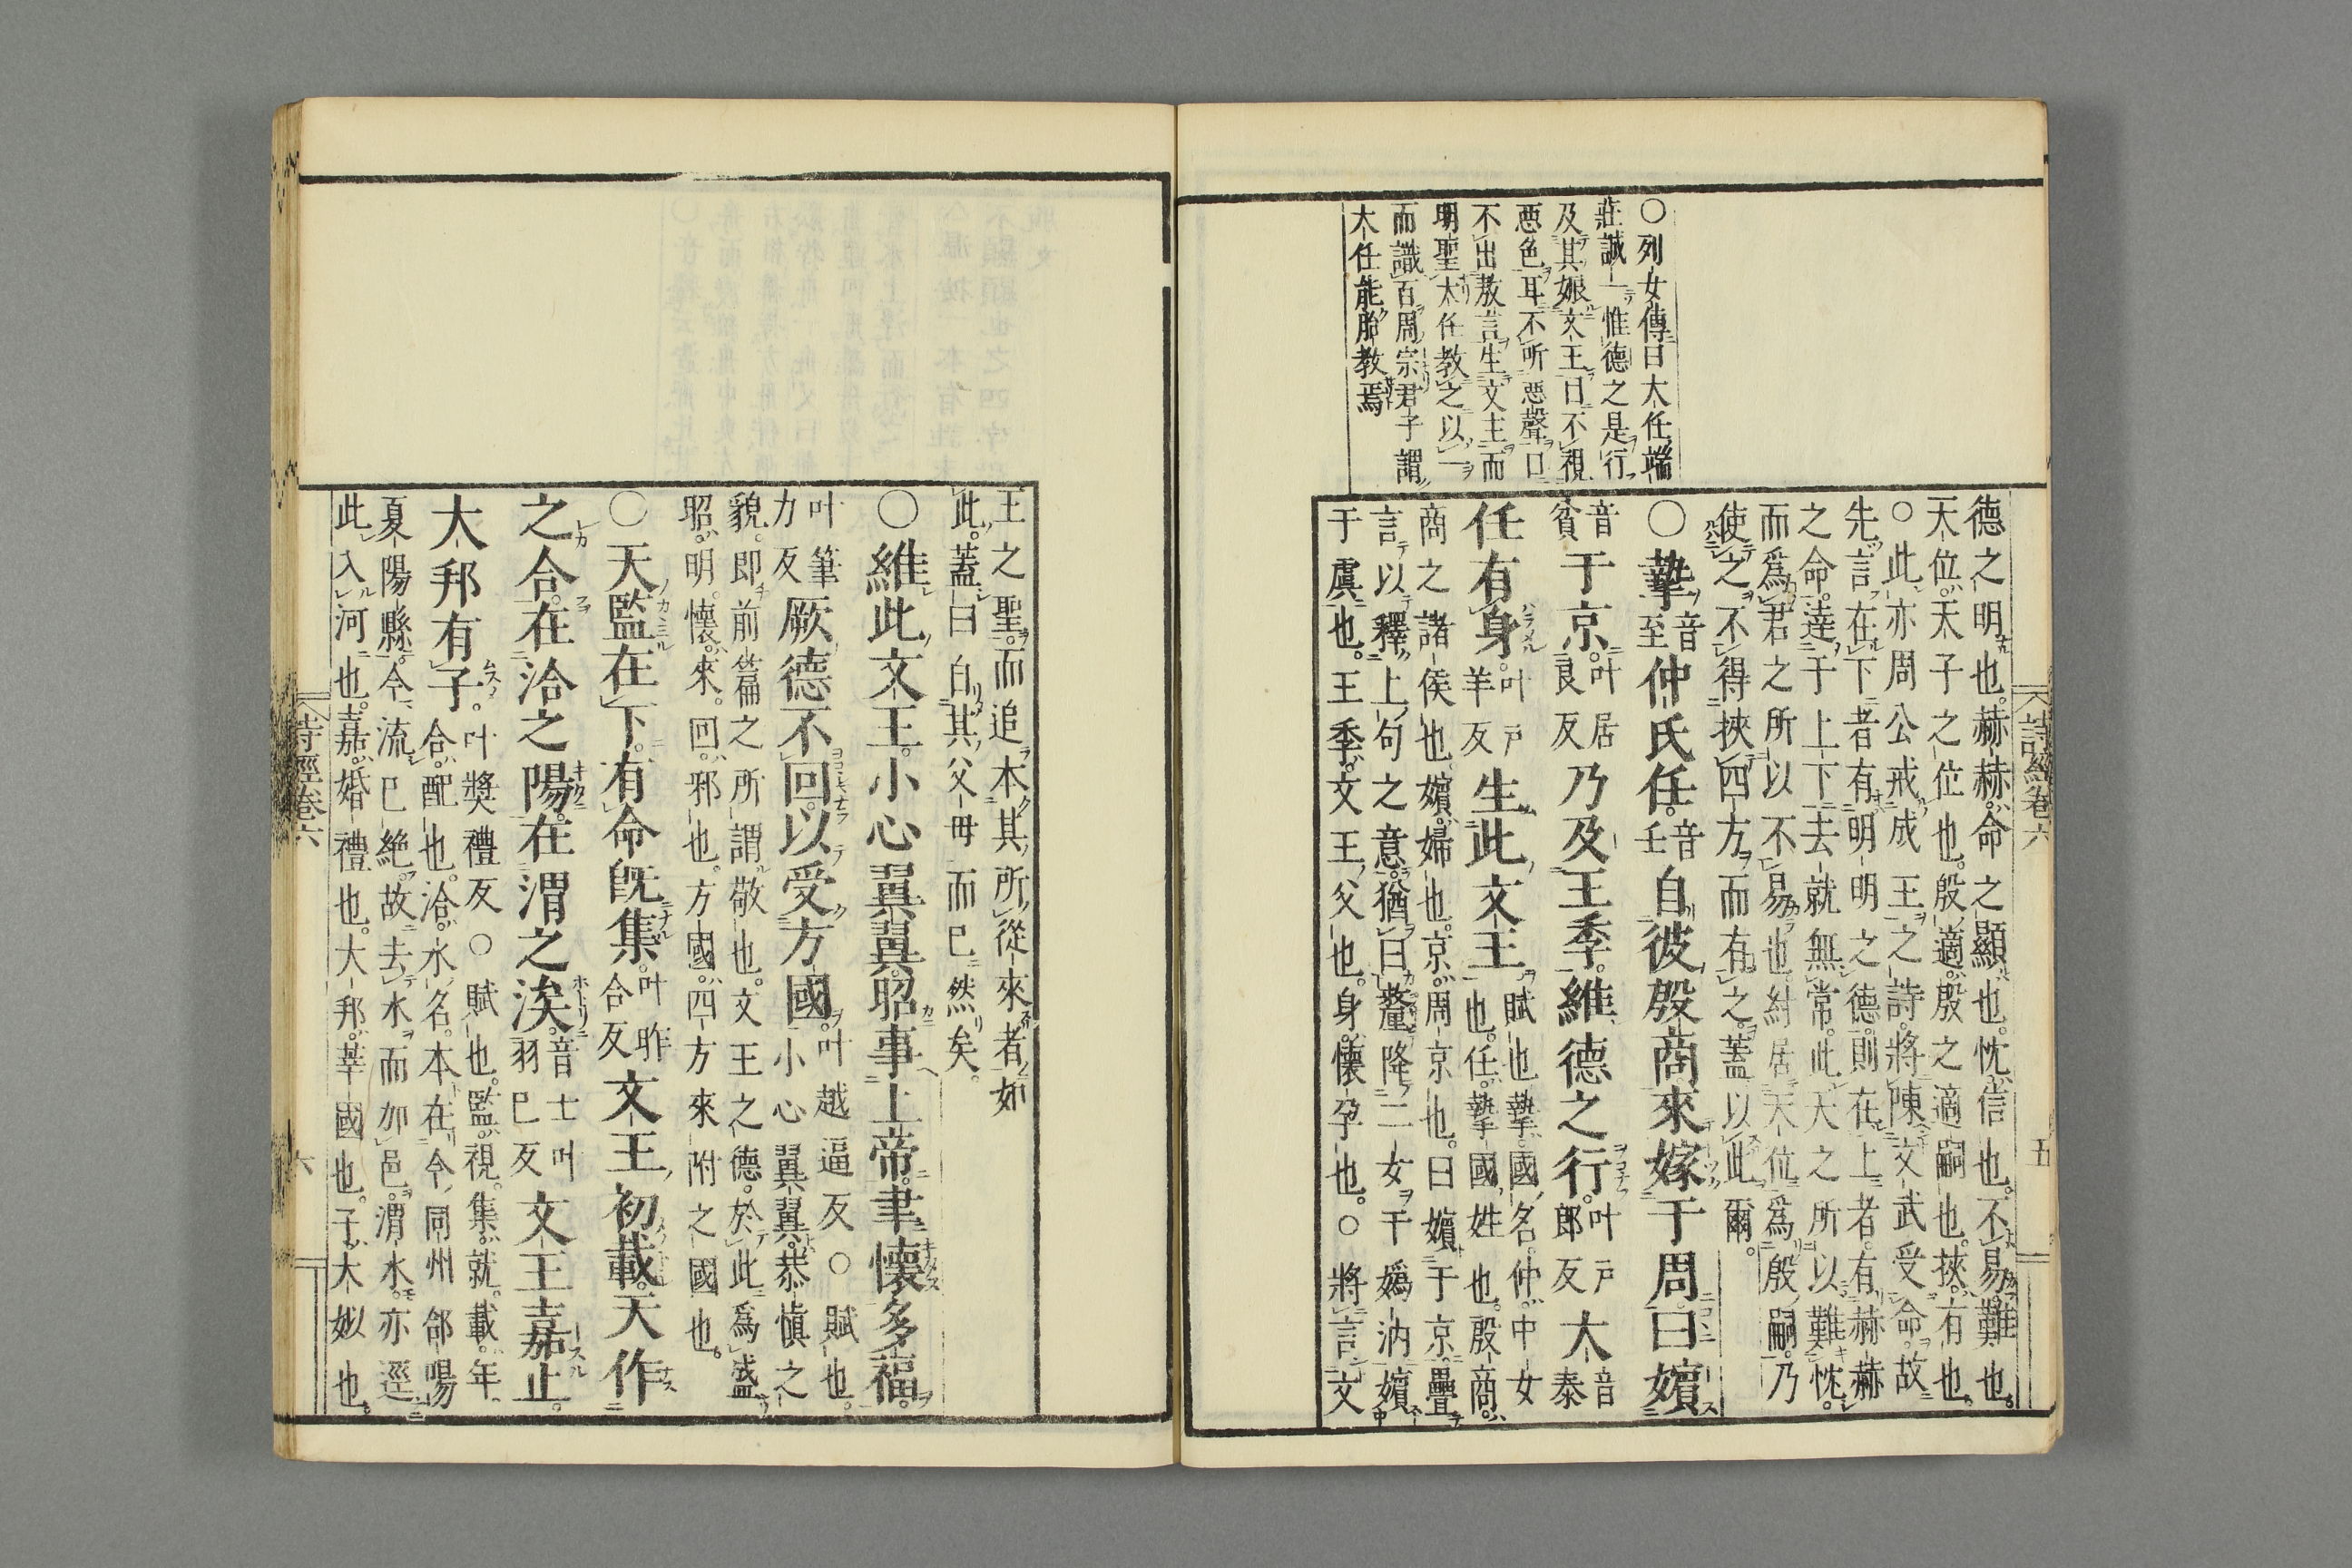 ○列女傳曰大任端
莊誠一惟德之是行
及其娠文王目不視
惡色耳不所惡聲口
不出敖言生文王而
明聖大任教之以一
而識百周宗君子謂
大任能胎教焉
德之明也赫赫命之顯也忱信也不易難也
天位天子之位也殷適殷之適嗣也挾有也
○此亦周公戒成王之詩將陳文武受命故
先言在下者有明明之德則在上者有赫赫
之命達于上下去就無常此天之所以難忱
而爲君之所以不易也紂居天位爲殷嗣乃
使之不得挾四方而有之蓋以此爾
○摯音至仲氏任音壬自彼殷商來嫁于周曰嬪
音貧于京叶居良反乃及王季維德之行叶戸郎反大音泰
任有身叶戸羊反生此文王賦也摯國名仲中女也任摯國姓也殷商
商之諸侯也嬪婦也京周京也曰嬪于京疊
言以釋上句之意猶曰釐降二女于嬀汭嬪
于虞也王季文王父也身懷孕也○將言文
詩經卷六
五
王之聖而追本其所從來者如
此蓋曰自其父母而已然矣
○維此文王小心翼翼昭事上帝聿懷多福
叶筆力反厥德不回以受方國叶越逼反○賦也小心翼翼恭愼之
貌即前篇之所謂敬也文王之德於此爲盛
昭明懷來回邪也方國四方來附之國也
○天監在下有命旣集叶昨合反文王初載天作
之合在洽之陽在渭之涘音士叶羽已反文王嘉止
大邦有子叶奬禮反○賦也監視集就載年
合配也洽水名本在今同州郃陽
夏陽縣今流已絶故去水而加邑渭水亦逕
此入河也嘉婚禮也大邦莘國也子大姒也
詩經卷六
六